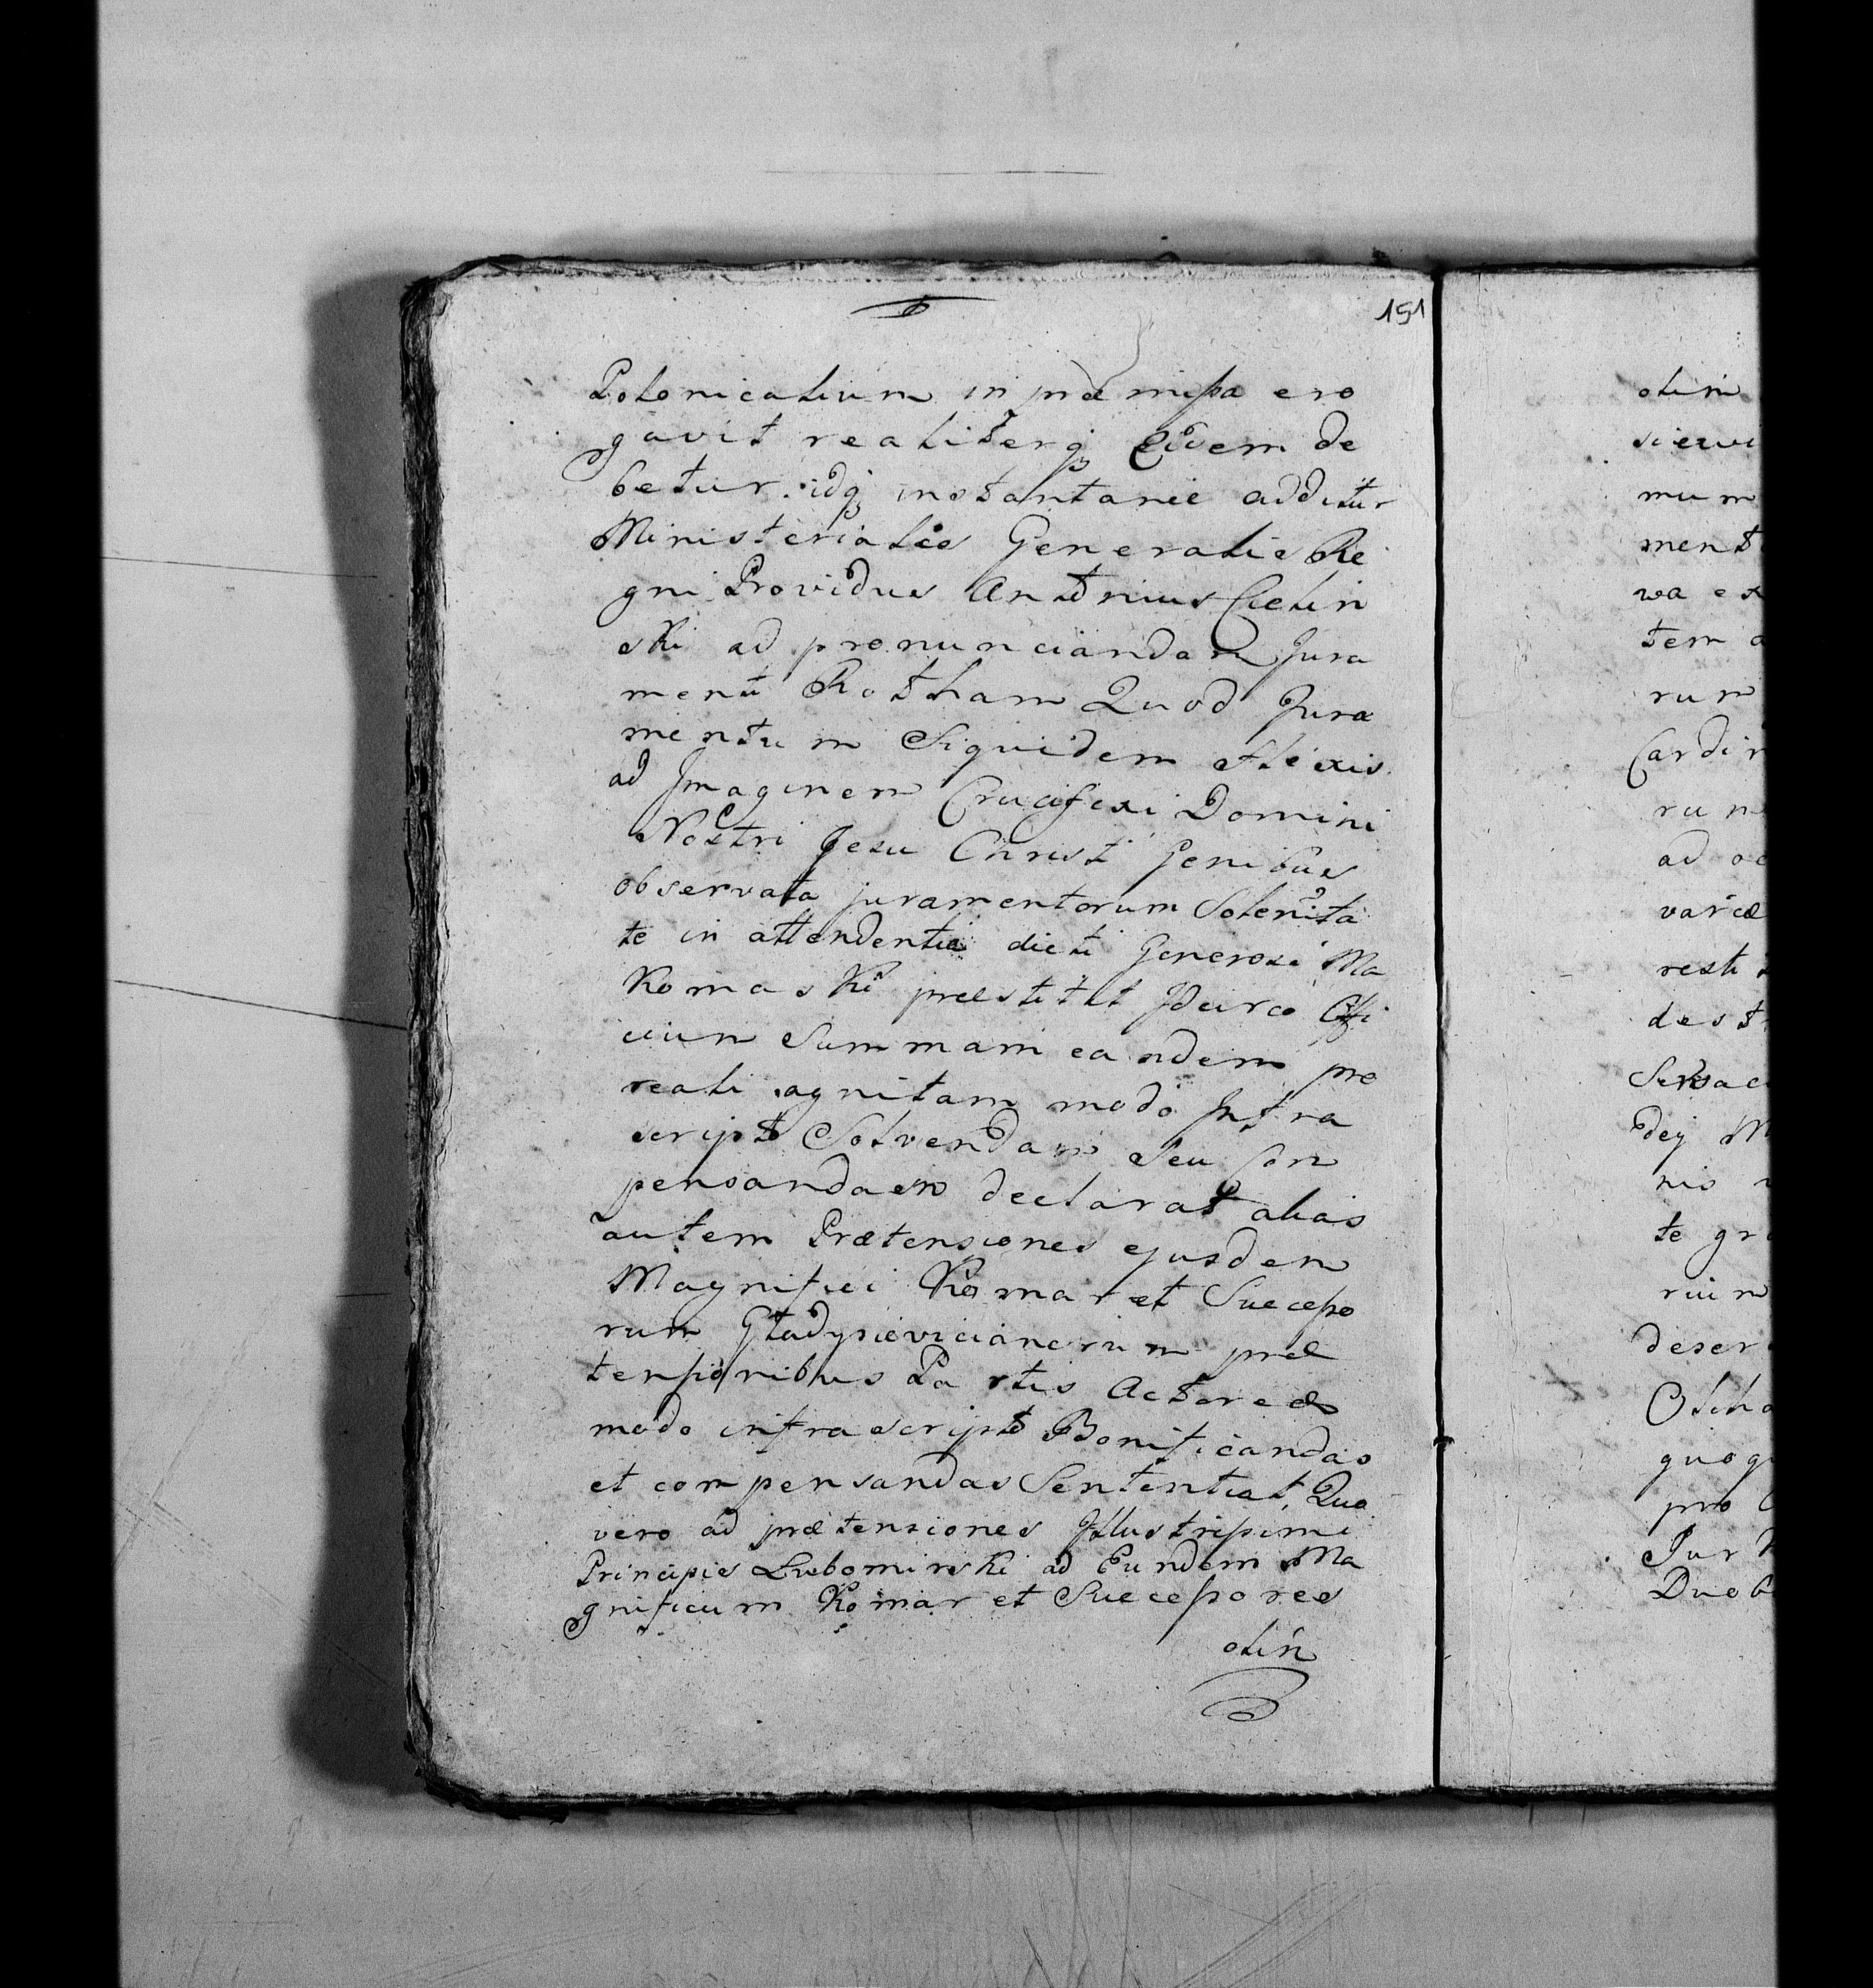 151
Polonicalium in præmissa ero
gavit realiterq Eidem de
betur. idq instantanee additur
Ministerialis Generalis Re
gni Providus Antonius Cielin
ski ad pronunciandam Jura
menti Rotham Quod Jura
mentum Siquidem flexis
ad Imaginem Crucifixi Domini
Nostri Jesu Christi Genibus
observata juramentorum Solenita
te in attendentia dicti Generosi Ma
Komaski præstitit Idcirco Offi
cium Summam eandem pro
reali agnitam modo Infra
scripto Solvendam Seu Com
pensandam declarat alias
autem Prætensiones ejusdem
Magnifici Komar et Successo
rum Gładysievicianorum præ
tensionibus Partis Actoreæ
modo infrascripto Bonificandas
et compensandas Sententiat, Quo
vero ad prætensiones Illustrissimi
Principis Lubomirski ad Eundem Ma
gnificum Komar et Successores
olim
olim
mum
tem
rum
Cardin
ad
varia
resti
dey
nis
te
rium
deser
quoq
pro